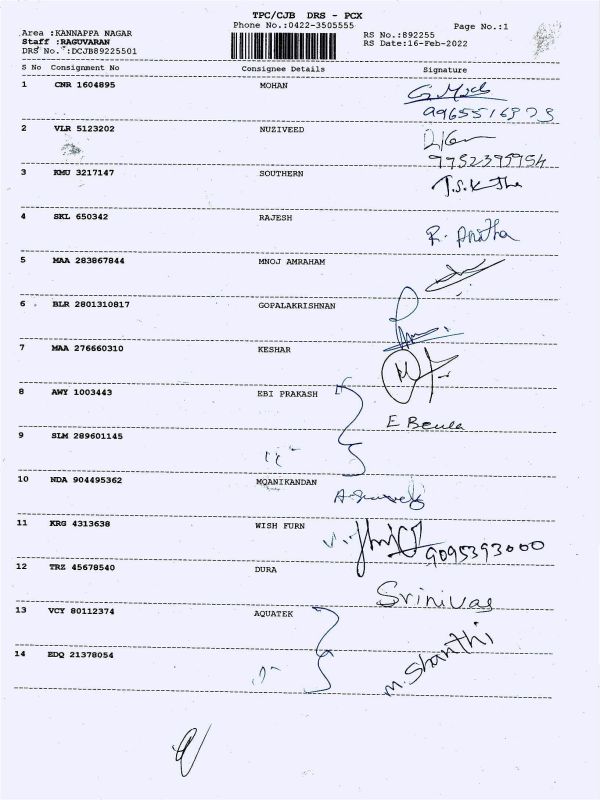 TPC/CJB DRS - PCX
Area :KANNAPPA NAGAR Phone No.:0422-3505555 Page No.:1
Staff :RAGUVARAN RS No.:892255
DRS No. :DCJB89225501 RS Date:16-Feb-2022
S No Consignment No Consignee Details Signature
1 CNR 1604895 MOHAN
2 VLR 5123202 NUZIVEED
9752395954
3 KMU 3217147 SOUTHERN
T.S.K
4 SKL 650342 RAJESH
R. Anitha
5 MAA 283867844 MNOJ AMRAHAM
6 BLR 2801310817 GOPALAKRISHNAN
7 MAA 276660310 KESHAR
8 AWY 1003443 EBI PRAKASH
E Beula
9 SLM 289601145
10 NDA 904495362 MQANIKANDAN
11 KRG 4313638 WISH FURN
9095393000
12 TRZ 45678540 DURA
Srinivas
13 VCY 80112374 AQUATEK
M. Shanthi
14 EDQ 21378054